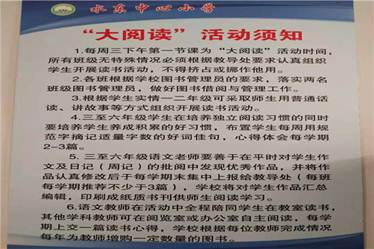 水东中心小学
“大阅读”活动须知
1.每周三下午第一节课为“大阅读”活动时间,
所有班级无特殊情况必须根据教导处要求认真组织
学生开展读书活动,不得挤占或挪作他用。
2.各班根据学校图书管理员的要求,落实两名
班级图书管理员,做好图书借阅与管理工作。
3.根据学生实情一二年级可采取师生用普通话
读、讲故事等方式组织开展读书活动。
4.三至六年级学生在培养独立阅读习惯的同时
要培养学生养成积累的好习惯,布置学生每周用规
范字摘记适量字数的好词佳句,心得体会每学期
2-3篇。
5.三至六年级语文老师要善于在平时对学生作
文及日记(周记)的批阅中发现优秀作品,并将作
品认真修改后于每学期末集中上报给教导处(每班
每学期推荐不少于3篇),学校将对学生作品汇总
编辑,印刷成纸质书刊供师生阅读学习。
6.语文教师在活动中全程陪同学生在教室读书,
其他学科教师可在阅览室或办公室自主阅读,每学
期上交一篇读书心得,学校根据每位教师完成情况
每年为教师增购一定数量的图书。